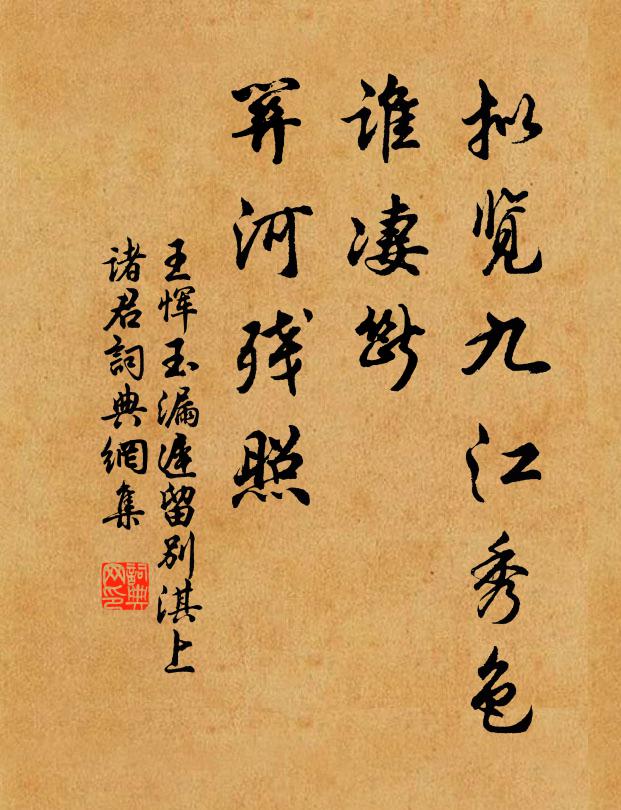 拟览九江秀色
谁凄断
关河残照
王恽玉漏遲留别淇上
诸君詞典網集
詞典
网印